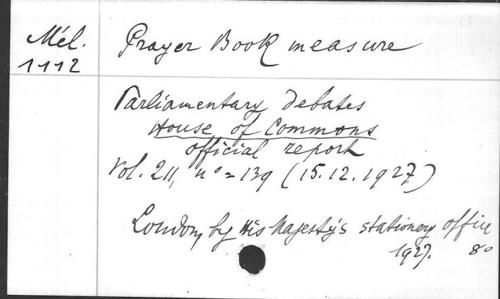 Mél.
1112
Prayer Book measure
Parliamentary debates
House of Commons
official report
Vol. 211, n° = 139 (15.12.1927)
London, by His Majesty's stationery office
1927. 8°